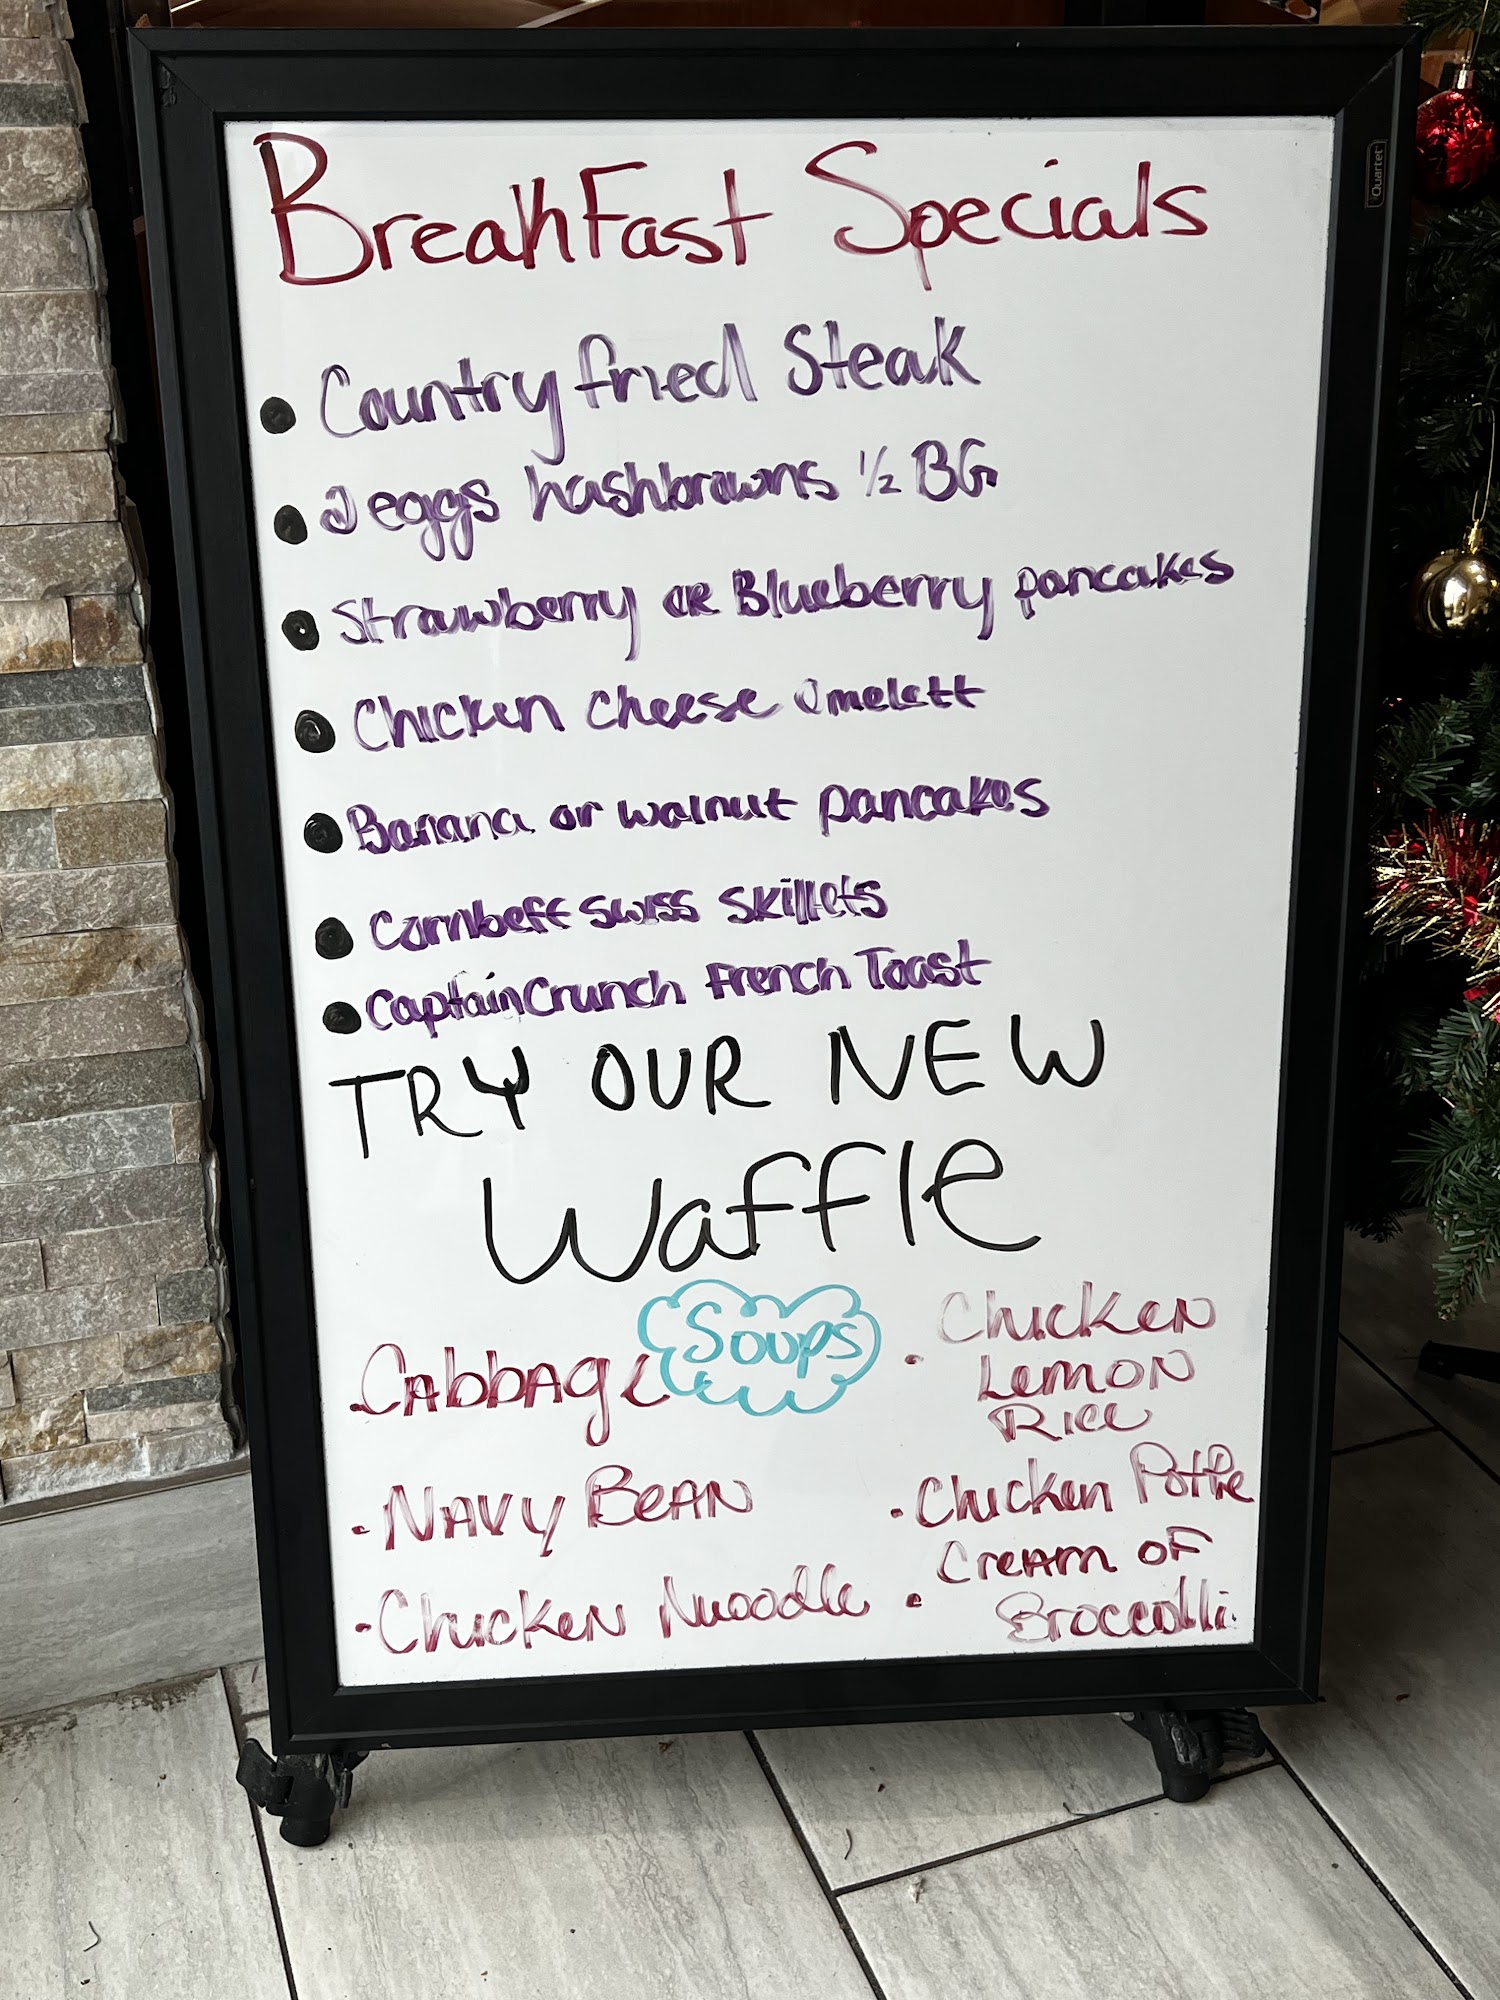 Quartet
BreakFast Specials
• Country fried Steak
• 2 eggs hashbrowns 1/2 BG
• Strawberry OR Blueberry pancakes
• Chicken cheese Omelett
• Banana or walnut pancakes
• Cornbeff swiss skillets
• Captain Crunch French Toast
TRY OUR NEW
Waffle
Soups
• Cabbage
• NAVY BEAN
• Chicken Nuoodle
• Chicken
Lemon
Rice
• Chicken PotPie
• Cream OF
Broccolli